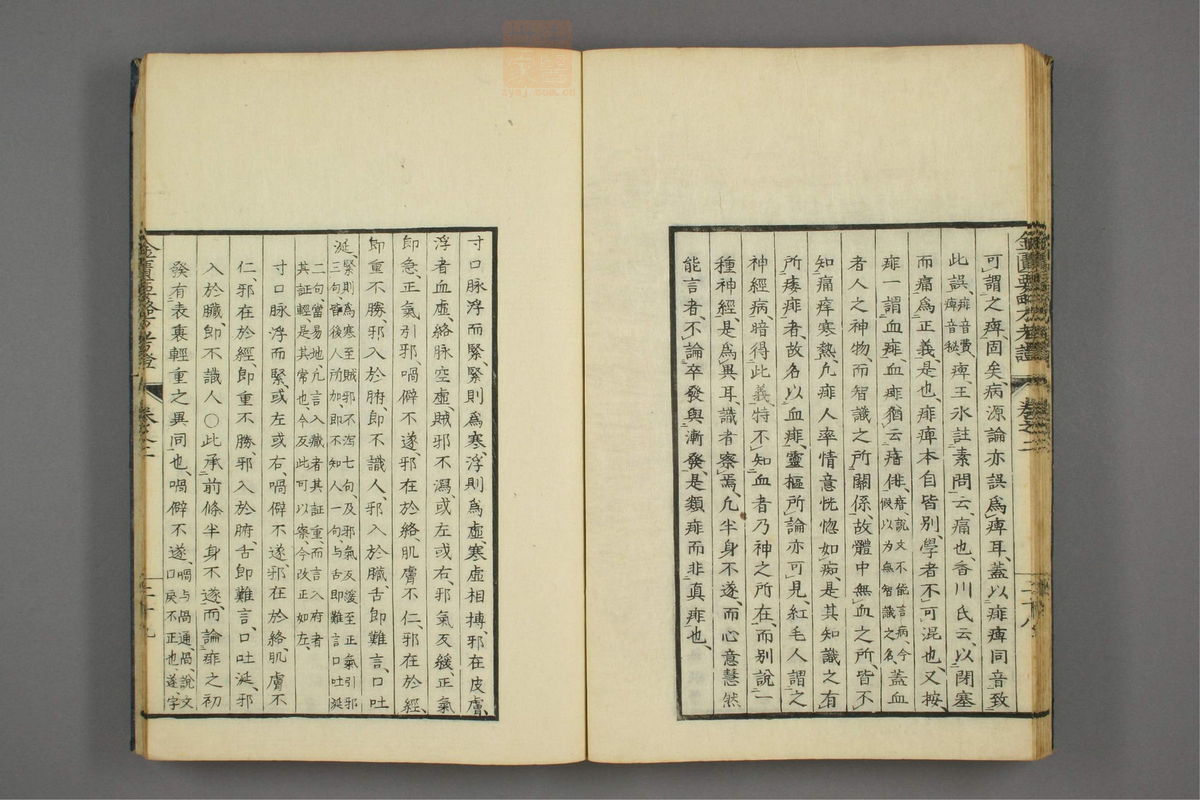 可謂之痺固矣、病源論亦誤為痺耳、蓋以痱痺同音致
此誤、痱音費、痺音秘、痺、王氷註素問云、痛也、香川氏云、以閉塞
而痛為正義是也、痱痺本自皆別、學者不可混也、又按、
痱一謂血痱、血痱猶云瘖俳、瘖說文不能言病、今假以为無智識之名、蓋血
者人之神物、而智識之所關係、故體中無血之所、皆不
知痛痒寒熱、凢痱人率情意恍惚如痴、是其知識之有
所痿痱者、故名以血痱、靈樞所論亦可見、紅毛人謂之
神經病、暗得此義、特不知血者乃神之所在、而別說一
種神經、是為異耳、識者察焉、凢半身不遂、而心意慧然
能言者、不論卒發與漸發、是類痱而非真痱也、
寸口脉浮而緊、緊則為寒、浮則為虛、寒虛相搏、邪在皮膚、
浮者血虛、絡脉空虛、賊邪不瀉、或左或右、邪氣反緩、正氣
即急、正氣引邪、喎僻不遂、邪在於絡、肌膚不仁、邪在於經、
即重不勝、邪入於腑、即不識人、邪入於臟、舌即難言、口吐
涎、緊則為寒至賊邪不瀉七句、及邪氣反緩至正氣引邪三句、皆後人所加、即不知人一句、与舌即難言口吐涎
二句、當易地、凢言入藏者其証重、而言入府者其証輕、是其常也、今反此、可以察、今改正如左、
寸口脉浮而緊、或左或右、喎僻不遂、邪在於絡、肌膚不
仁、邪在於經、即重不勝、邪入於腑、舌即難言、口吐涎、邪
入於臟、即不識人○此承前條半身不遂、而論痱之初
發有表裏輕重之異同也、喎僻不遂、喎与咼通、咼、說文口戾不正也、遂字
卷之二
二十八
卷之二
二十九